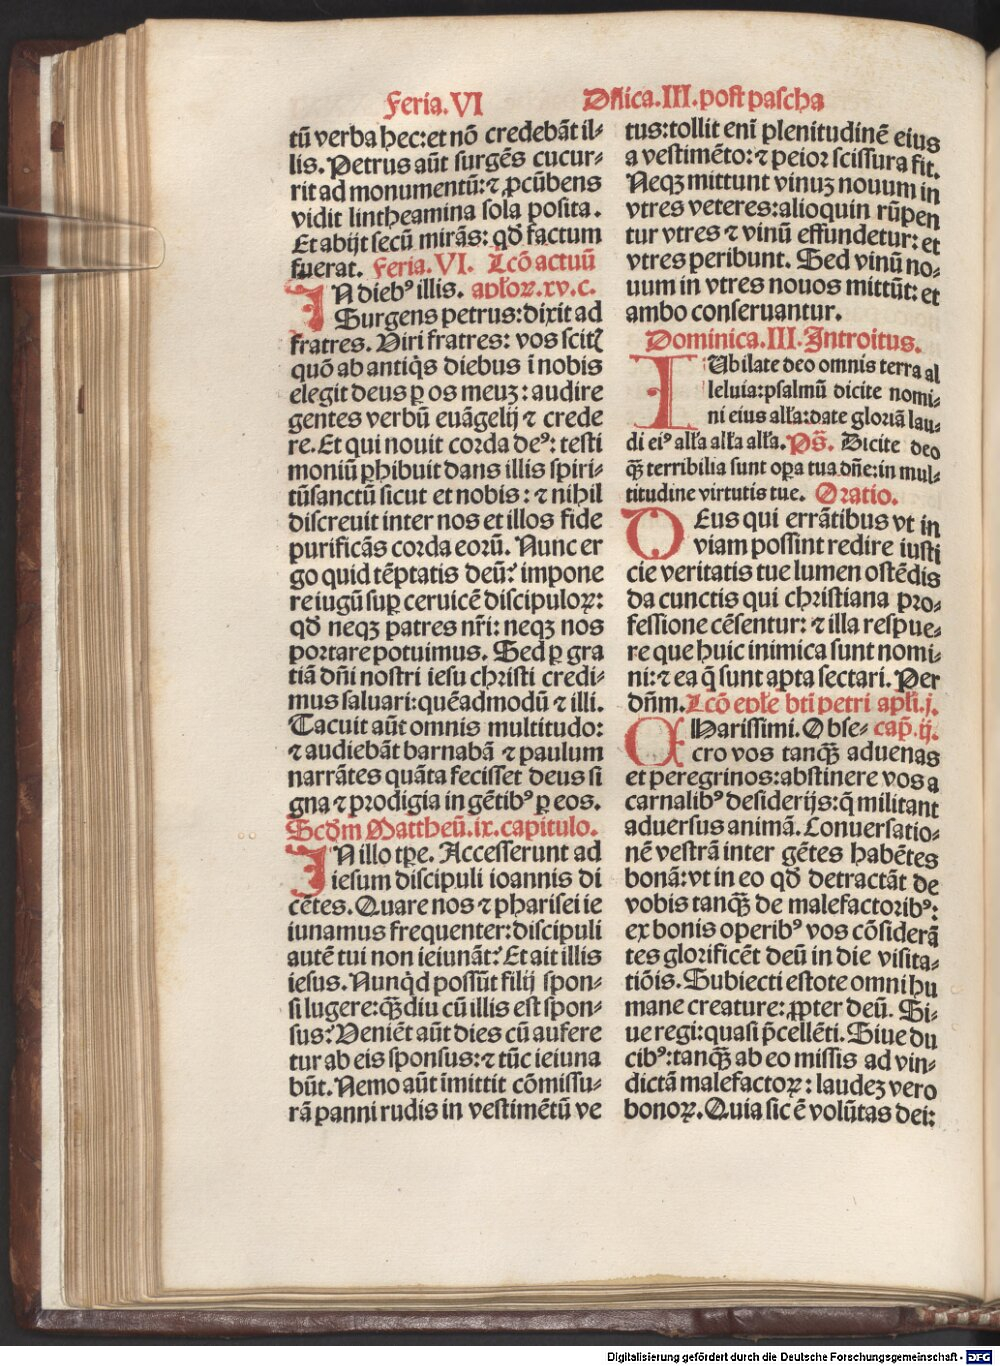 Feria.VI
Dñica.III.post pascha
tū verba hec: et nō credebāt il⸗
lis. Petrus aūt surgēs cucur⸗
rit ad monumentū: ⁊ ꝓcūbens
vidit lintheamina sola posita.
Et abijt secū mirās: qď factum
fuerat. Feria.VI. Lcō actuū
IN dieb⁹ illis. apl'oꝝ.xv.c.
Surgens petrus: dixit ad
fratres. Viri fratres: vos scitꝭ
quō ab antiq̇s diebus ī nobis
elegit deus ꝑ os meuꝫ: audire
gentes verbū euāgelij ⁊ crede
re. Et qui nouit corda de⁹: testi
moniū ꝑhibuit dans illis spiri⸗
tūsanctū sicut et nobis: ⁊ nihil
discreuit inter nos et illos fide
purificās corda eorū. Nunc er
go quid tēptatis deū? impone
re iugū suꝑ ceruicē discipuloꝝ:
qď neqꝫ patres nr̄i: neqꝫ nos
portare potuimus. Sed ꝑ gra
tiā dn̄i nostri iesu christi credi⸗
mus saluari: quēadmodū ⁊ illi.
Tacuit aūt omnis multitudo:
⁊ audiebāt barnabā ⁊ paulum
narrātes quāta fecisset deus si
gna ⁊ prodigia in gētib⁹ ꝑ eos.
Scďm Mattheū.ix.capitulo.
IN illo tꝑe. Accesserunt ad
iesum discipuli ioannis di
cētes. Quare nos ⁊ pharisei ie
iunamus frequenter: discipuli
autē tui non ieiunāt? Et ait illis
iesus. Nunq̇d possūt filij spon⸗
si lugere: qꝫ̄diu cū illis est spon⸗
sus? Veniēt aūt dies cū aufere
tur ab eis sponsus: ⁊ tūc ieiuna
būt. Nemo aūt īmittit cōmissu⸗
rā panni rudis in vestimētū ve
tus: tollit eni plenitudinē eius
a vestimēto: ⁊ peior scissura fit.
Neqꝫ mittunt vinuꝫ nouum in
vtres veteres: alioquin rūpen
tur vtres ⁊ vinū effundetur: et
vtres peribunt. Sed vinū no⸗
uum in vtres nouos mittūt: et
ambo conseruantur.
Dominica.III. Introitus.
IUbilate deo omnis terra al
leluia: psalmū dicite nomi⸗
ni eius all'a: date gloriā lau⸗
di ei⁹ all'a all'a all'a. Ps̄. Dicite deo
qꝫ̄ terribilia sunt oꝑa tua dn̄e: in mul⸗
titudine virtutis tue. Oratio.
DEus qui errātibus vt in
viam possint redire iusti
cie veritatis tue lumen ostēdis
da cunctis qui christiana pro⸗
fessione cēsentur: ⁊ illa respue⸗
re que huic inimica sunt nomi⸗
ni: ⁊ ea q̄ sunt apta sectari. Per
dn̄m. Lcō epl'e bti petri apl'i.j.
CHarissimi. Obse⸗ cap̄.ij.
cro vos tanqꝫ̄ aduenas
et peregrinos: abstinere vos a
carnalib⁹ desiderijs: q̄ militant
aduersus animā. Conuersatio⸗
nē vestrā inter gētes habētes
bonā: vt in eo qď detractāt de
vobis tanqꝫ̄ de malefactorib⁹:
ex bonis operib⁹ vos cōsiderā
tes glorificēt deū in die visita⸗
tiōis. Subiecti estote omni hu
mane creature: ꝓpter deū. Si⸗
ue regi: quasi p̄cellēti. Siue du
cib⁹: tanqꝫ̄ ab eo missis ad vin⸗
dictā malefactoꝝ: laudeꝫ vero
bonoꝝ. Quia sic ē volūtas dei:
Digitalisierung gefördert durch die Deutsche Forschungsgemeinschaft - DFG